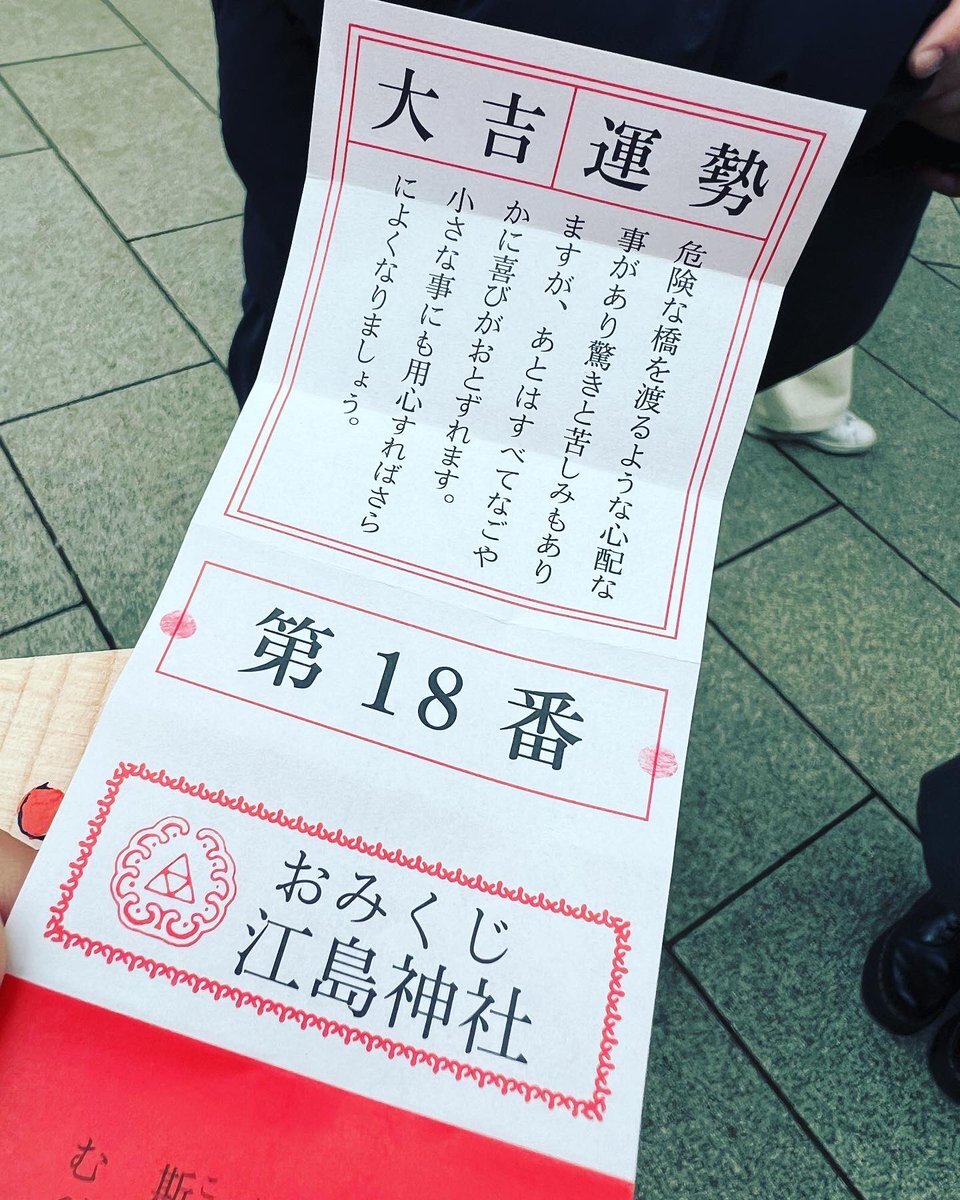 運勢
大吉
危険な橋を渡るような心配な
事があり驚きと苦しみもあり
ますが、あとはすべてなごや
かに喜びがおとずれます。
小さな事にも用心すればさら
によくなりましょう。
第18番
おみくじ
江島神社
斯
む